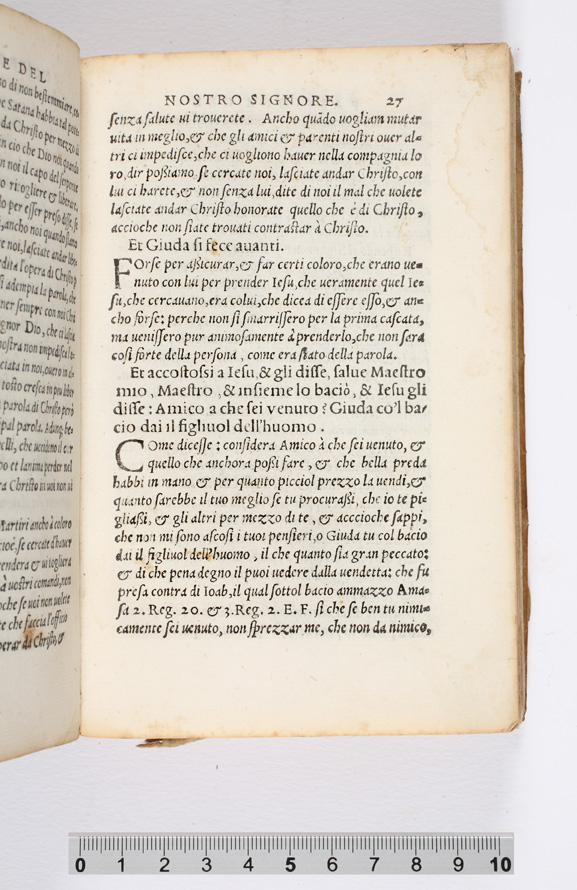 E DEL
o di non bestemmiare,
e Satana habbia tal
da Christo per mezo di
in cio che Dio noi
n noi il capo del serpente
o ri ogliere & liberare,
o per esser preso disse, se
, ancho noi quando siamo
e noi, lasciate andar
rdita l'opera di Christo p
si adempia la parola, che
ner sempre con noi
gnor Dio, che ci lascia
nostra non impedisca
ciata in noi, ouero in
tosto cresca in piu liber
parola di Christo però
ipal parola. Adunq;
elli, che uccidono il cor
po et lanima perder nel
ra Christo in uoi non ui
Martiri anchò à coloro
cioè, se cercate d'hauer
rendera & ui
à uostri comandi, non
oche se uoi non uolete
te che faccia l'officio
perar da Christo, &
NOSTRO SIGNORE. 27
senza salute ui trouerete. Ancho quādo uogliam mutar
uita in meglio, & che gli amici & parenti nostri ouer al=
tri ci impedisce, che ci uogliono hauer nella compagnia lo
ro, dir possiamo, se cercate noi, lasciate andar Christo, con
lui ci harete, & non senza lui, dite di noi il mal che uolete
lasciate andar Christo honorate quello che è di Christo,
accioche non siate trouati contrastar à Christo.
Et Giuda si fece auanti.
FOrse per assicurar, & far certi coloro, che erano ue=
nuto con lui per prender Iesu, che ueramente quel Ie=
su, che cercauano, era colui, che dicea di essere esso, & an=
cho forse: perche non si smarrissero per la prima cascata,
ma uenissero pur animosamente à prenderlo, che non sara
cosi forte della persona, come era stato della parola.
Et accostossi a Iesu, & gli disse, salue Maestro
mio, Maestro, & insieme lo baciò, & Iesu gli
disse: Amico a che sei venuto? Giuda co'l ba=
cio dai il figliuol dell'huomo.
COme dicesse: considera Amico à che sei uenuto, &
quello che anchora possi fare, & che bella preda
habbi in mano & per quanto picciol prezzo la uendi, &
quanto sarebbe il tuo meglio se tu procurassi, che io te pi=
gliassi, & gli altri per mezzo di te, & acccioche sappi,
che non mi sono ascosi i tuoi pensieri, o Giuda tu col bacio
dai il figliuol dell'huomo, il che quanto sia gran peccato:
& di che pena degno il puoi uedere dalla uendetta: che fu
presa contra di Ioab, il qual sottol bacio ammazzo Ama=
sa 2. Reg. 20. & 3. Reg. 2. E. F. sì che se ben tu nimi=
camente sei uenuto, non sprezzar me, che non da nimico,
0 1 2 3 4 5 6 7 8 9 10